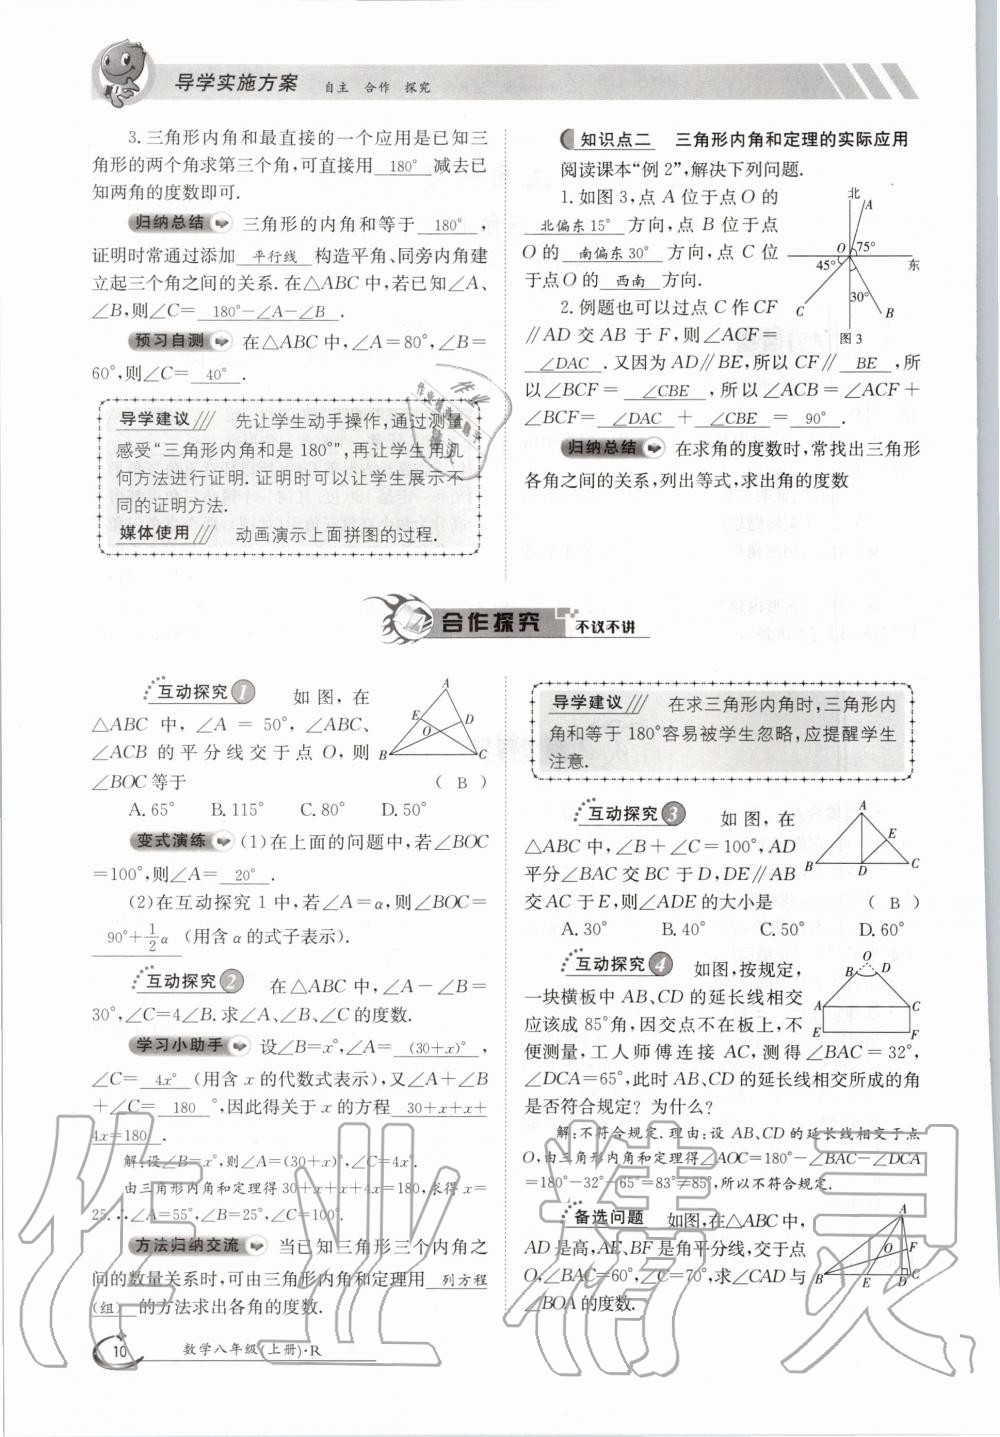 导学实施方案 自主 合作 探究
3.三角形内角和最直接的一个应用是已知三
角形的两个角求第三个角,可直接用 180° 减去已
知两角的度数即可.
归纳总结 三角形的内角和等于 180° ,
证明时常通过添加 平行线 构造平角、同旁内角建
立起三个角之间的关系.在△ABC中,若已知∠A、
∠B,则∠C= 180°-∠A-∠B .
预习自测 在△ABC中,∠A=80°,∠B=
60°,则∠C= 40° .
导学建议 先让学生动手操作,通过测量
感受“三角形内角和是180°”,再让学生用几
何方法进行证明.证明时可以让学生展示不
同的证明方法.
媒体使用 动画演示上面拼图的过程.
知识点二 三角形内角和定理的实际应用
阅读课本“例2”,解决下列问题.
1.如图3,点A位于点O的
北偏东15° 方向,点B位于点
O的 南偏东30° 方向,点C位
于点O的 西南 方向.
2.例题也可以过点C作CF
∥AD交AB于F,则∠ACF=
∠DAC .又因为AD∥BE,所以CF∥ BE ,所
以∠BCF= ∠CBE ,所以∠ACB=∠ACF+
∠BCF= ∠DAC + ∠CBE = 90° .
归纳总结 在求角的度数时,常找出三角形
各角之间的关系,列出等式,求出角的度数
北
A
O 75°
45° 东
30°
C B
图3
合作探究 不议不讲
互动探究1 如图,在
△ABC中,∠A=50°,∠ABC、
∠ACB的平分线交于点O,则
∠BOC等于 ( B )
A.65° B.115° C.80° D.50°
A
E D
O
B C
变式演练 (1)在上面的问题中,若∠BOC
=100°,则∠A= 20° .
(2)在互动探究1中,若∠A=α,则∠BOC=
90°+1/2α (用含α的式子表示).
互动探究2 在△ABC中,∠A-∠B=
30°,∠C=4∠B.求∠A、∠B、∠C的度数.
学习小助手 设∠B=x°,∠A= (30+x)° ,
∠C= 4x° (用含x的代数式表示),又∠A+∠B
+∠C= 180 °,因此得关于x的方程 30+x+x+
4x=180 .
解:设∠B=x°,则∠A=(30+x)°,∠C=4x°.
由三角形内角和定理得30+x+x+4x=180,求得x=
25.∴∠A=55°,∠B=25°,∠C=100°.
方法归纳交流 当已知三角形三个内角之
间的数量关系时,可由三角形内角和定理用 列方程
(组) 的方法求出各角的度数.
导学建议 在求三角形内角时,三角形内
角和等于180°容易被学生忽略,应提醒学生
注意.
互动探究3 如图,在
△ABC中,∠B+∠C=100°,AD
平分∠BAC交BC于D,DE∥AB
交AC于E,则∠ADE的大小是 ( B )
A.30° B.40° C.50° D.60°
A
E
B D C
互动探究4 如图,按规定,
一块横板中AB、CD的延长线相交
应该成85°角,因交点不在板上,不
便测量,工人师傅连接AC,测得∠BAC=32°,
∠DCA=65°,此时AB、CD的延长线相交所成的角
是否符合规定?为什么?
O
B D
A C
E F
解:不符合规定.理由:设AB、CD的延长线相交于点
O,由三角形内角和定理得∠AOC=180°-∠BAC-∠DCA
=180°-32°-65°=83°≠85°,所以不符合规定.
备选问题 如图,在△ABC中,
AD是高,AE、BF是角平分线,交于点
O,∠BAC=60°,∠C=70°,求∠CAD与
∠BOA的度数.
A
O F
B E D C
10 数学八年级(上册)·R
作业精灵